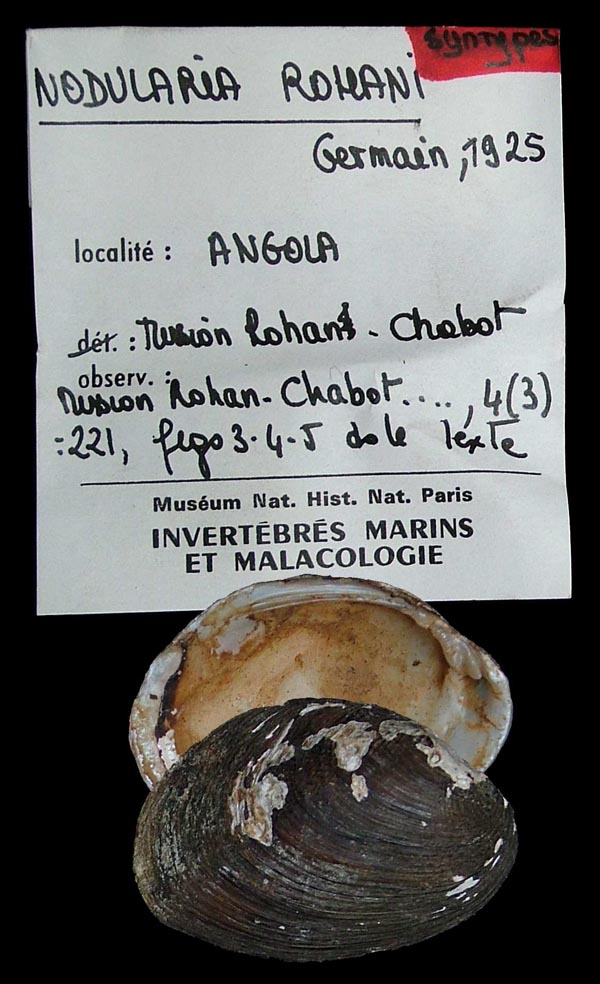 syntypes
NODULARIA ROHANI
Germain, 1925
localité : ANGOLA
dét. : Mission Rohan - Chabot
observ. :
Mission Rohan-Chabot...., 4(3)
:221, figs 3-4-5 ds le texte
Muséum Nat. Hist. Nat. Paris
INVERTÉBRÉS MARINS
ET MALACOLOGIE